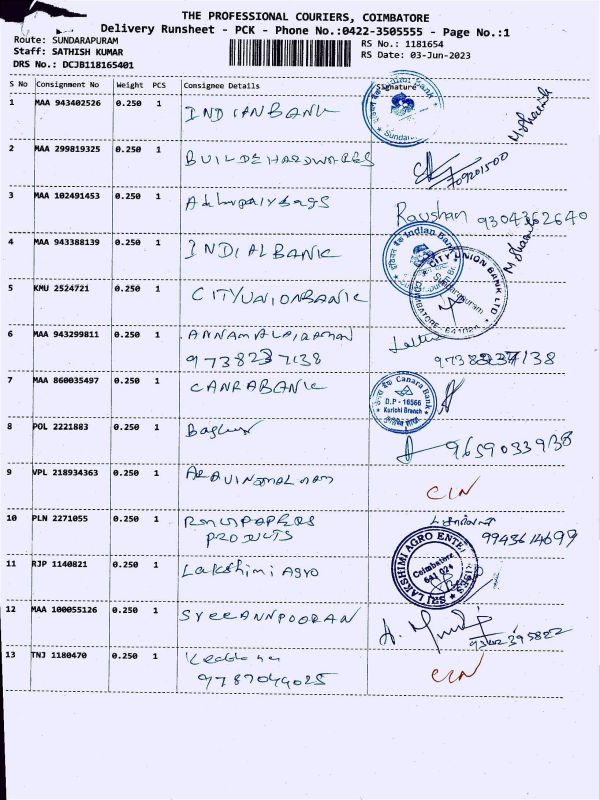 THE PROFESSIONAL COURIERS, COIMBATORE
Delivery Runsheet - PCK - Phone No.:0422-3505555 - Page No.:1
Route: SUNDARAPURAM
RS No.: 1181654
Staff: SATHISH KUMAR
RS Date: 03-Jun-2023
DRS No.: DCJB118165401
S No Consignment No Weight PCS Consignee Details Signature
1 MAA 943402526 0.250 1 INDIANBANK
2 MAA 299819325 0.250 1 BUILDEHARDWARES
3 MAA 102491453 0.250 1 Raushan 9304362640
4 MAA 943388139 0.250 1 INDIALBANK इंडियन बैंक Indian Bank
5 KMU 2524721 0.250 1 CITYUNIONBANK CITY UNION BANK LTD COIMBATORE
6 MAA 943299811 0.250 1 ANNAMALAIRAMAN
9738237138
7 MAA 860035497 0.250 1 CANRABANK Canara Bank D.P - 16566 Kurichi Branch
8 POL 2221883 0.250 1 9659033938
9 VPL 218934363 0.250 1 CIN
10 PLN 2271055 0.250 1 PAPERS
PRODUCTS 9943614699
11 RJP 1140821 0.250 1 Lakshimi Agro SRI LAKSHIMI AGRO Coimbatore 641 024
12 MAA 100055126 0.250 1 SYEEANNPOORAN
13 TNJ 1180470 0.250 1 CIN
9787049025